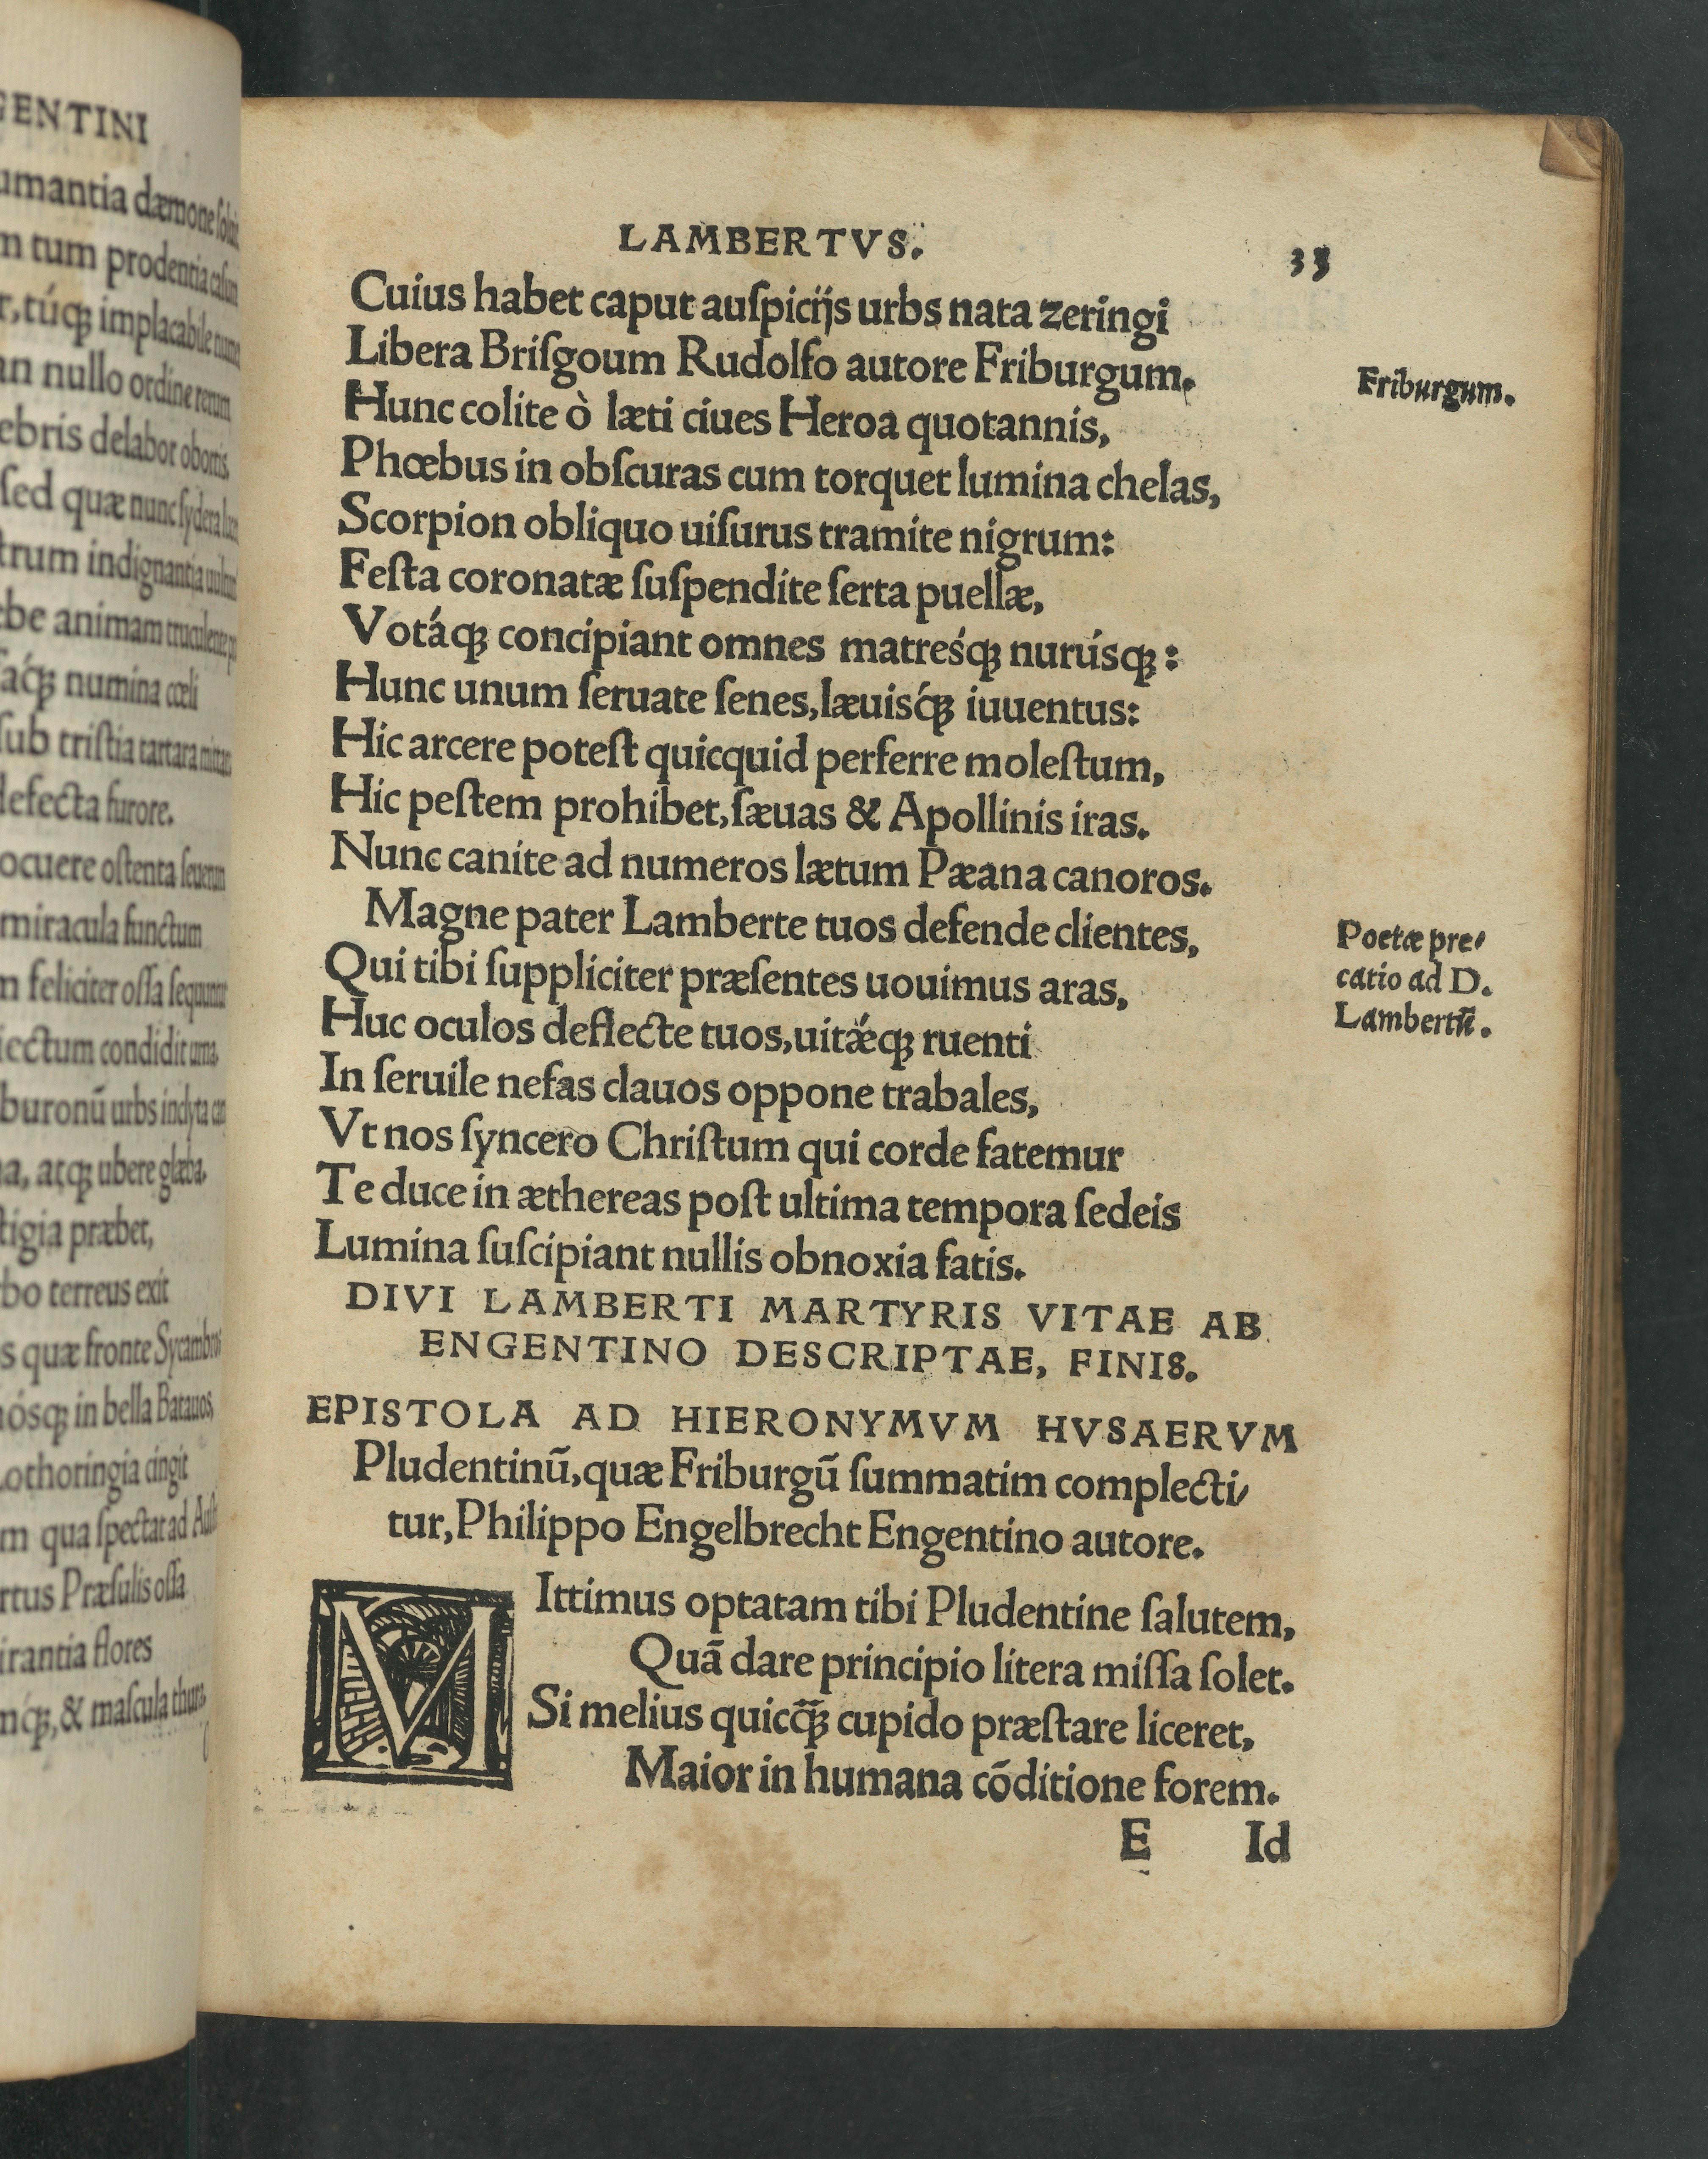 GENTINI
umantia dæmone
m tum prodentia casum
r, túqꝫ implacabile
an nullo ordine rerum
ebris delabor obortis,
sed quæ nunc sydera
trum indignantia
be animam truculente
áqꝫ numina cœli
sub tristia tartara
defecta furore.
ocuere ostenta
miracula functum
m feliciter ossa sequuntur
iectum condidit urna.
buronū urbs inclyta
na, atqꝫ ubere glæba.
tigia præbet,
rbo terreus exit
s quæ fronte Sycambros
ósqꝫ in bella Batauos,
Lothoringia cingit
m qua spectat ad
rtus Præsulis ossa
irantia flores
mqꝫ, & mascula thura
LAMBERTVS.
33
Cuius habet caput auſpicijs urbs nata zeringi
Libera Briſgoum Rudolfo autore Friburgum.
Friburgum.
Hunc colite ò læti ciues Heroa quotannis,
Phœbus in obſcuras cum torquet lumina chelas,
Scorpion obliquo uiſurus tramite nigrum:
Feſta coronatæ ſuſpendite ſerta puellæ,
Votáqꝫ concipiant omnes matresq́ꝫ nurúsqꝫ:
Hunc unum ſeruate ſenes, læuisq́ꝫ iuuentus:
Hic arcere poteſt quicquid perferre moleſtum,
Hic peſtem prohibet, ſæuas & Apollinis iras.
Nunc canite ad numeros lætum Pæana canoros.
Magne pater Lamberte tuos defende clientes,
Poetæ pre-
Qui tibi ſuppliciter præſentes uouimus aras,
catio ad D.
Huc oculos deflecte tuos, uitǽqꝫ ruenti
Lambertū.
In ſeruile nefas clauos oppone trabales,
Vt nos ſyncero Chriſtum qui corde fatemur
Te duce in æthereas poſt ultima tempora ſedeis
Lumina ſuſcipiant nullis obnoxia fatis.
DIVI LAMBERTI MARTYRIS VITAE AB
ENGENTINO DESCRIPTAE, FINIS.
EPISTOLA AD HIERONYMVM HVSAERVM
Pludentinū, quæ Friburgū ſummatim complecti-
tur, Philippo Engelbrecht Engentino autore.
MIttimus optatam tibi Pludentine ſalutem,
Quā dare principio litera miſſa ſolet.
Si melius quicq̄̄ꝫ cupido præſtare liceret,
Maior in humana cōditione forem.
E Id